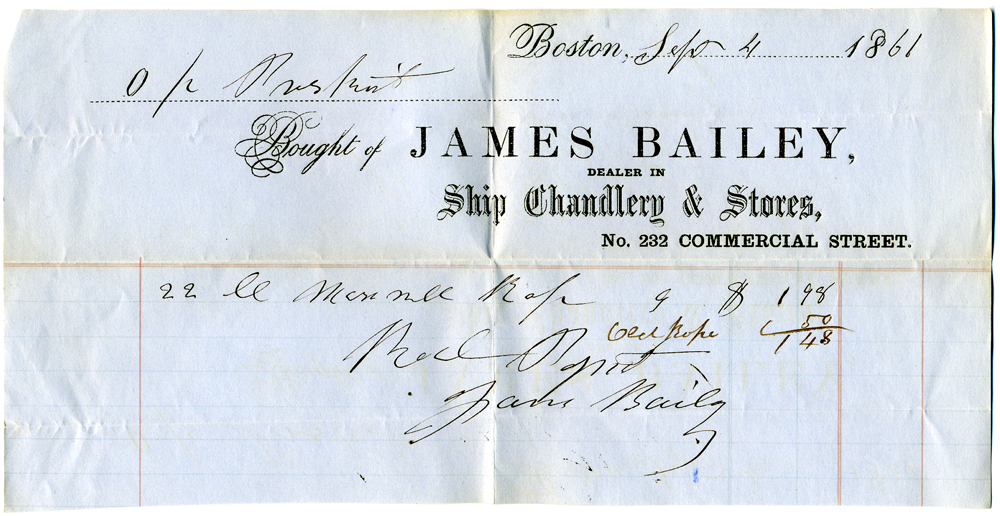 Boston, Sep 4 1861
Bought of JAMES BAILEY,
DEALER IN
Ship Chandlery & Stores,
No. 232 COMMERCIAL STREET.
22 Rope 9 $ 1 98
Old Rope 50
1 48
Recd
James Baily